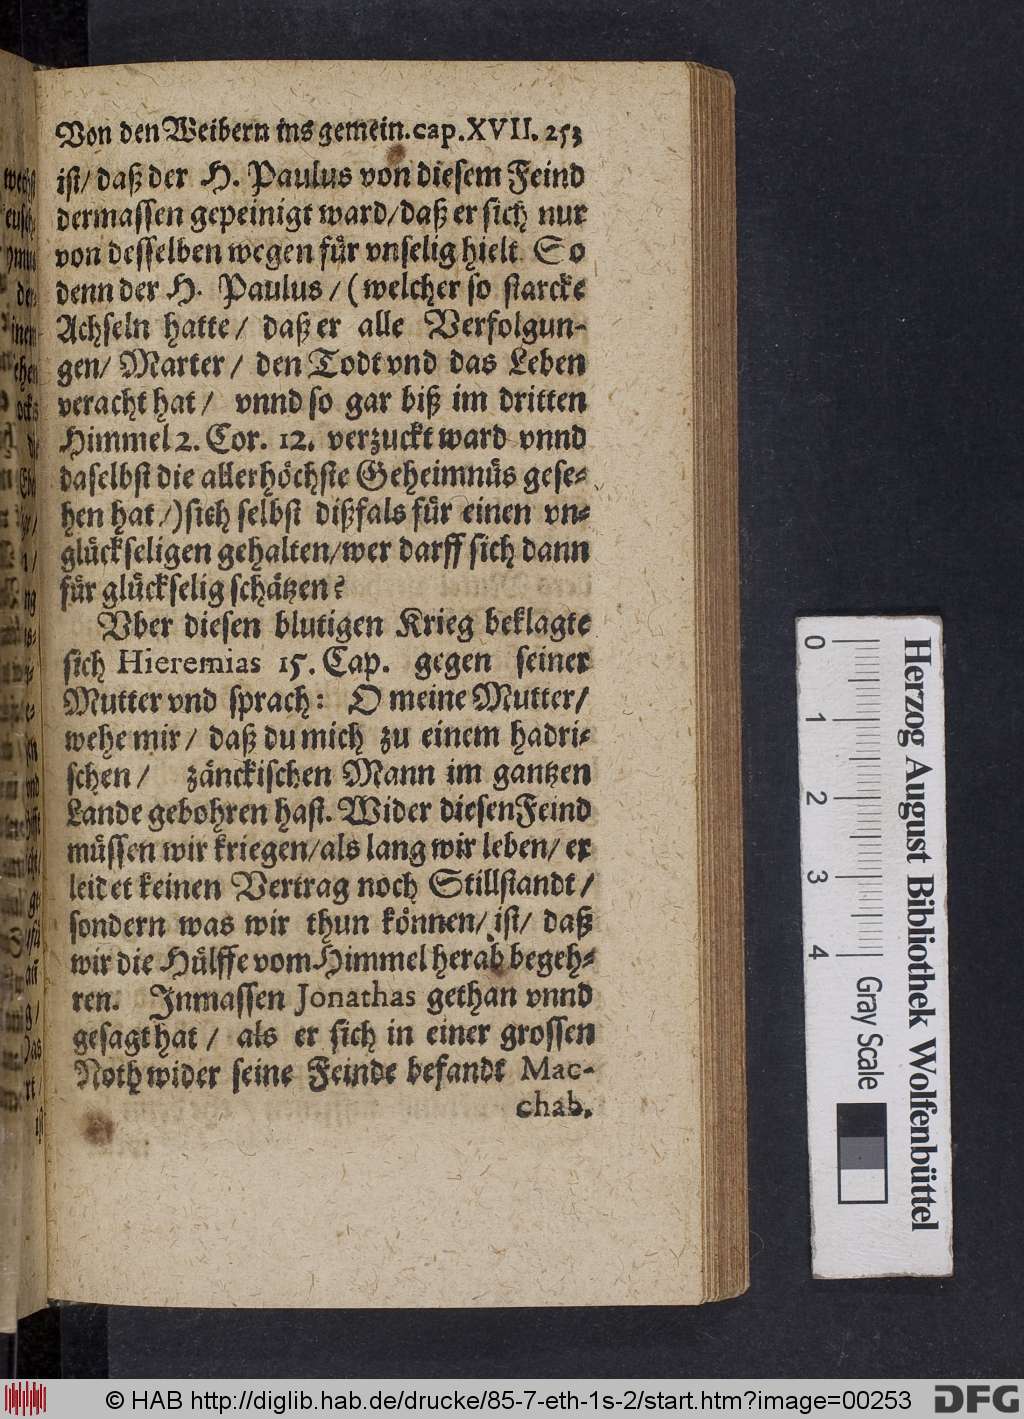 Von den Weibern ins gemein. cap. XVII. 253
ist/ daß der H. Paulus von diesem Feind
dermassen gepeinigt ward/ daß er sich nur
von desselben wegen fuͤr vnselig hielt So
denn der H. Paulus / ( welcher so starcke
Achseln hatte/ daß er alle Verfolgun-
gen/ Marter / den Todt vnd das Leben
veracht hat / vnnd so gar biß im dritten
Himmel 2. Cor. 12. verzuckt ward vnnd
daselbst die allerhoͤchste Geheimnuͤs gese-
hen hat /) sich selbst dißfals fuͤr einen vn-
gluͤckseligen gehalten/ wer darff sich dann
fuͤr gluͤckselig schaͤtzen?
Vber diesen blutigen Krieg beklagte
sich Hieremias 15. Cap. gegen seiner
Mutter vnd sprach: O meine Mutter/
wehe mir / daß du mich zu einem hadri-
schen / zaͤnckischen Mann im gantzen
Lande gebohren hast. Wider diesen Feind
muͤssen wir kriegen/ als lang wir leben/ er
leidet keinen Vertrag noch Stillstandt /
sondern was wir thun koͤnnen/ ist/ daß
wir die Huͤlffe vom Himmel herab begeh-
ren. Inmassen Jonathas gethan vnnd
gesagt hat / als er sich in einer grossen
Noth wider seine Feinde befandt Mac-
chab.
0 1 2 3 4 Gray Scale
Herzog August Bibliothek Wolfenbüttel
© HAB http://diglib.hab.de/drucke/85-7-eth-1s-2/start.htm?image=00253 DFG